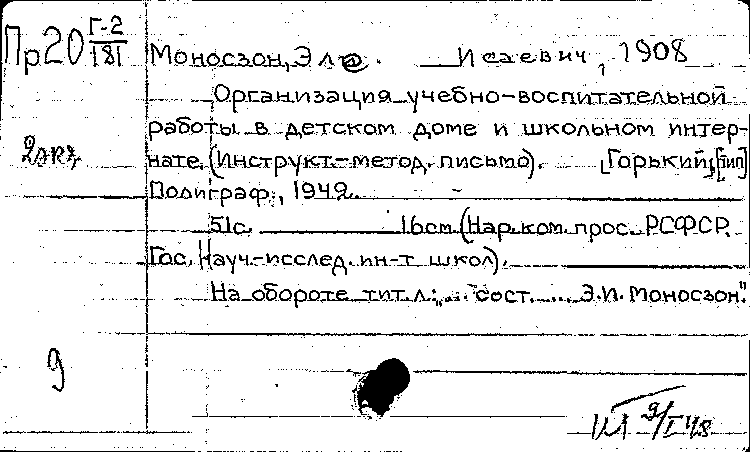 Пр20 Г-2/181
Моносзон, Эля. Исаевич, 1908
Организация учебно-воспитательной
работы в детском доме и школьном интер-
2экз.
нате. (Инструкт.-метод. письмо). [Горький], [тип]
Полиграф., 1942.
51с. 16см. (Нар. ком. прос. РСФСР.
Гос. Науч.-исслед. ин-т школ).
На обороте тит. л.: „... сост. ... Э.И. Моносзон."
9
9/I 48